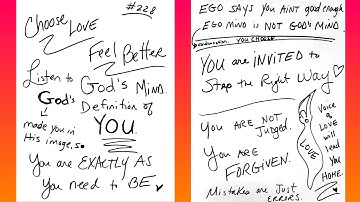 #228
Choose
LOVE
Feel Better
Listen to
God's
God's Mind.
Definition of
YOU.
made you in
His image, so
You are EXACTLY AS
You need to BE
EGO SAYS You AIN'T good enough.
EGO MIND is NOT GOD'S MIND.
YOU CHOOSE.
YOU are INVITED to
Stop the Right Way
You ARE NOT
Judged.
You ARE
FORGIVEN.
Mistakes are Just
ERRORS.
Go
LOVE
Voice
of
LOVE
will
lead
You
HOME.